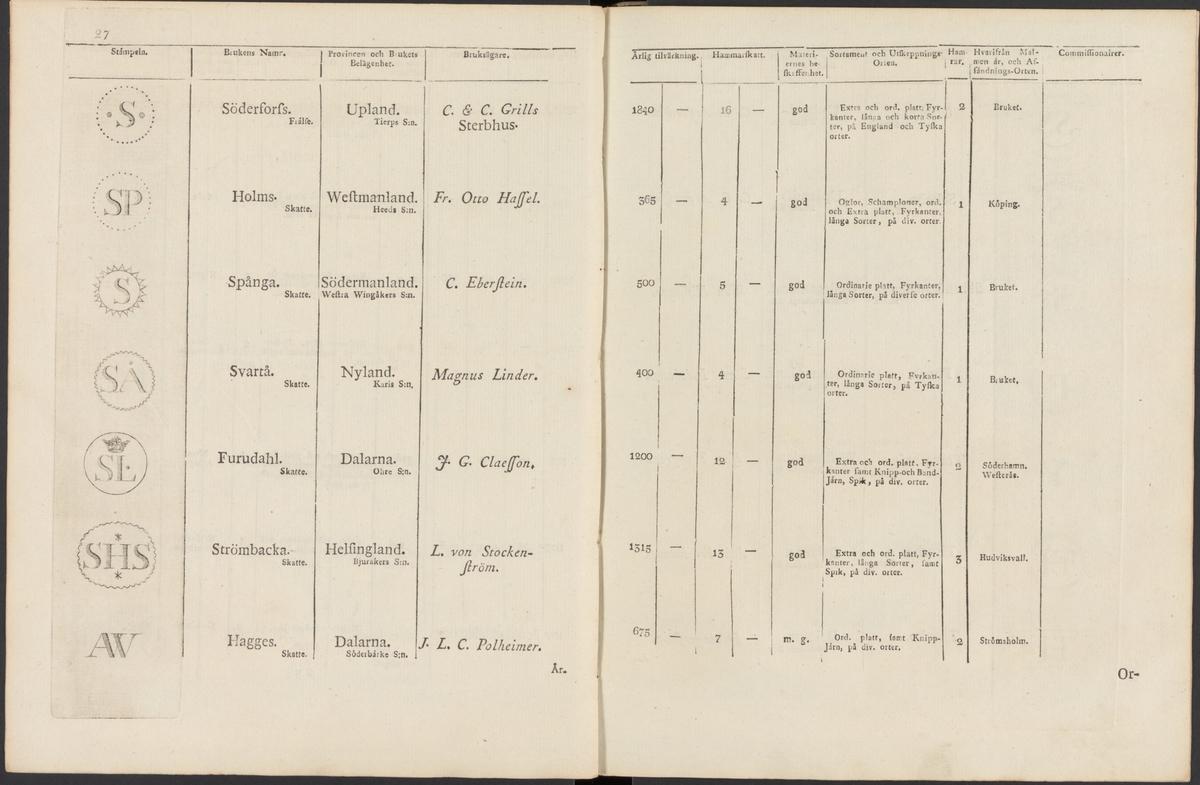 27
Stämpeln. Brukens Namn. Provincen och Brukets Bruksägare.
Belägenhet.
·S· Söderforſs. Upland. C. & C. Grills
Frälſe. Tierps S:n. Sterbhus.
SP Holms. Weſtmanland. Fr. Otto Haſſel.
Skatte. Heeds S:n.
S Spånga. Södermanland. C. Eberſtein.
Skatte. Weſtra Wingåkers S:n.
SÅ Svartå. Nyland. Magnus Linder.
Skatte. Karis S:n,
SL Furudahl. Dalarna. J. G. Claeſſon.
Skatte. Ohre S:n.
*
SHS Strömbacka. Helſingland. L. von Stocken-
* Skatte. Bjuråkers S:n. ſtröm.
AW Hagges. Dalarna. J. L. C. Polheimer.
Skatte. Söderbärke S:n.
År.
Årlig tilvärkning. Hammarſkatt. Materi- Sortement och Utſkeppnings- Ham- Hvarifrån Mal- Commiſſionairer.
ernes be- Orten. rar. men är, och Af-
ſkaffenhet. ſändnings-Orten.
1840 — 16 — god Extra och ord. platt, Fyr- 2 Bruket.
kanter, långa och korta Sor-
ter, på England och Tyſka
orter.
365 — 4 — god Oglor, Schamploner, ord. 1 Köping.
och Extra platt, Fyrkanter,
långa Sorter, på div. orter.
500 — 5 — god Ordinarie platt, Fyrkanter, 1 Bruket.
långa Sorter, på diverſe orter.
400 — 4 — god Ordinarie platt, Fyrkan- 1 Bruket.
ter, långa Sorter, på Tyſka
orter.
1200 — 12 — god Extra och ord. platt. Fyr- 2 Söderhamn.
kanter ſamt Knipp-och Band- Weſterås.
Järn, Spik, på div. orter.
1315 — 13 — god Extra och ord. platt, Fyr- 3 Hudviksvall.
kanter, långa Sorter, ſamt
Spik, på div. orter.
675 — 7 — m. g. Ord. platt, ſamt Knipp- 2 Strömsholm.
Järn, på div. orter.
Or-